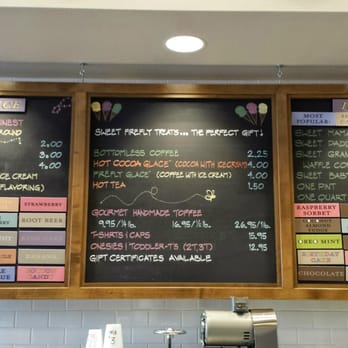 INEST
ROUND
2.00
3.00
4.00
ICE CREAM
FLAVORING)
STRAWBERRY
ROOT BEER
COTTON CANDY
SWEET FIREFLY TREATS... THE PERFECT GIFT!
BOTTOMLESS COFFEE 2.25
HOT COCOA GLACE' (COCOA WITH ICECREAM) 4.00
FIREFLY GLACE' (COFFEE WITH ICE CREAM) 4.00
HOT TEA 1.50
GOURMET HANDMADE TOFFEE
9.95/¼ lb. 16.95/½ lb. 26.95/1lb.
T-SHIRTS | CAPS 15.95
ONESIES | TODDLER-T'S (2T,3T) 12.95
GIFT CERTIFICATES AVAILABLE
MOST
POPULAR:
SWEET MAMA
SWEET DADD
SWEET GRAN
WAFFLE CO
SWEET BAB
ONE PINT
ONE QUART
RASPBERRY
SORBET
ALMOND
FUDGE
OREO MINT
BIRTHDAY
CAKE
CHOCOLATE